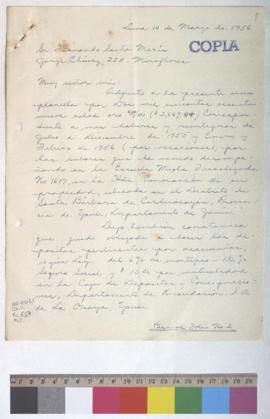 Lima 10 de Marzo de 1956
COPIA
Sr. Fernando Santa María
Jorge Chávez, 220 - Miraflores
Muy señor mío:
Adjunto a la presente una
planilla por Dos mil
nueve soles oro
diente a mis haberes y
Julio a Diciembre de 1955 y Enero y
Febrero de 1956 (por vacaciones), por
las labores que he venido desempe-
ñando en la Escuela Mixta Fiscalizada
No 1617 en la Hda. de su
propiedad, ubicada en el Distrito de
Santa Bárbara de Carhuacayán, Provin-
cia de Yauli, Departamento de Junín.
Dejo también constancia
que quedo obligado a hacer los de-
pósitos
según Ley del 6% de montepío
Seguro Social y
en la Caja de Depósitos y Consignacio-
nes, Departamento de Recaudación, S.A.
de La Oroya, Yauli.
Pasa al folio No 2